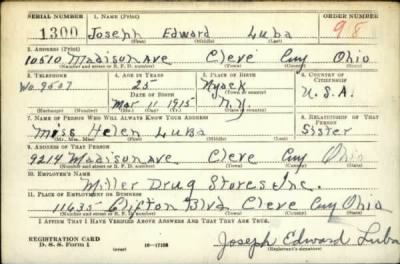 SERIAL NUMBER 1. NAME (Print) ORDER NUMBER
1300 Joseph Edward Luba 98
(First) (Middle) (Last)
2. ADDRESS (Print)
10510 Madison Ave Cleve Cuy Ohio
(Number and street or R. F. D. number) (Town) (County) (State)
3. TELEPHONE 4. AGE IN YEARS 5. PLACE OF BIRTH 6. COUNTRY OF CITIZENSHIP
Wo. 9507 25 Nyack U.S.A.
DATE OF BIRTH
Mar 11 1915 N.Y.
(Exchange) (Number) (Mo.) (Day) (Yr.) (State or country)
7. NAME OF PERSON WHO WILL ALWAYS KNOW YOUR ADDRESS 8. RELATIONSHIP OF THAT PERSON
Miss Helen Luba Sister
(Mr., Mrs., Miss) (First) (Middle) (Last)
9. ADDRESS OF THAT PERSON
9214 Madison Ave Cleve Cuy Ohio
(Number and street or R. F. D. number) (Town) (County) (State)
10. EMPLOYER'S NAME
Miller Drug Stores Inc.
11. PLACE OF EMPLOYMENT OR BUSINESS
11635 Clifton Blvd Cleve Cuy Ohio
(Number and street or R. F. D. number) (Town) (County) (State)
I AFFIRM THAT I HAVE VERIFIED ABOVE ANSWERS AND THAT THEY ARE TRUE.
REGISTRATION CARD
D. S. S. Form 1 (over) 16—17105
Joseph Edward Luba
(Registrant's signature)